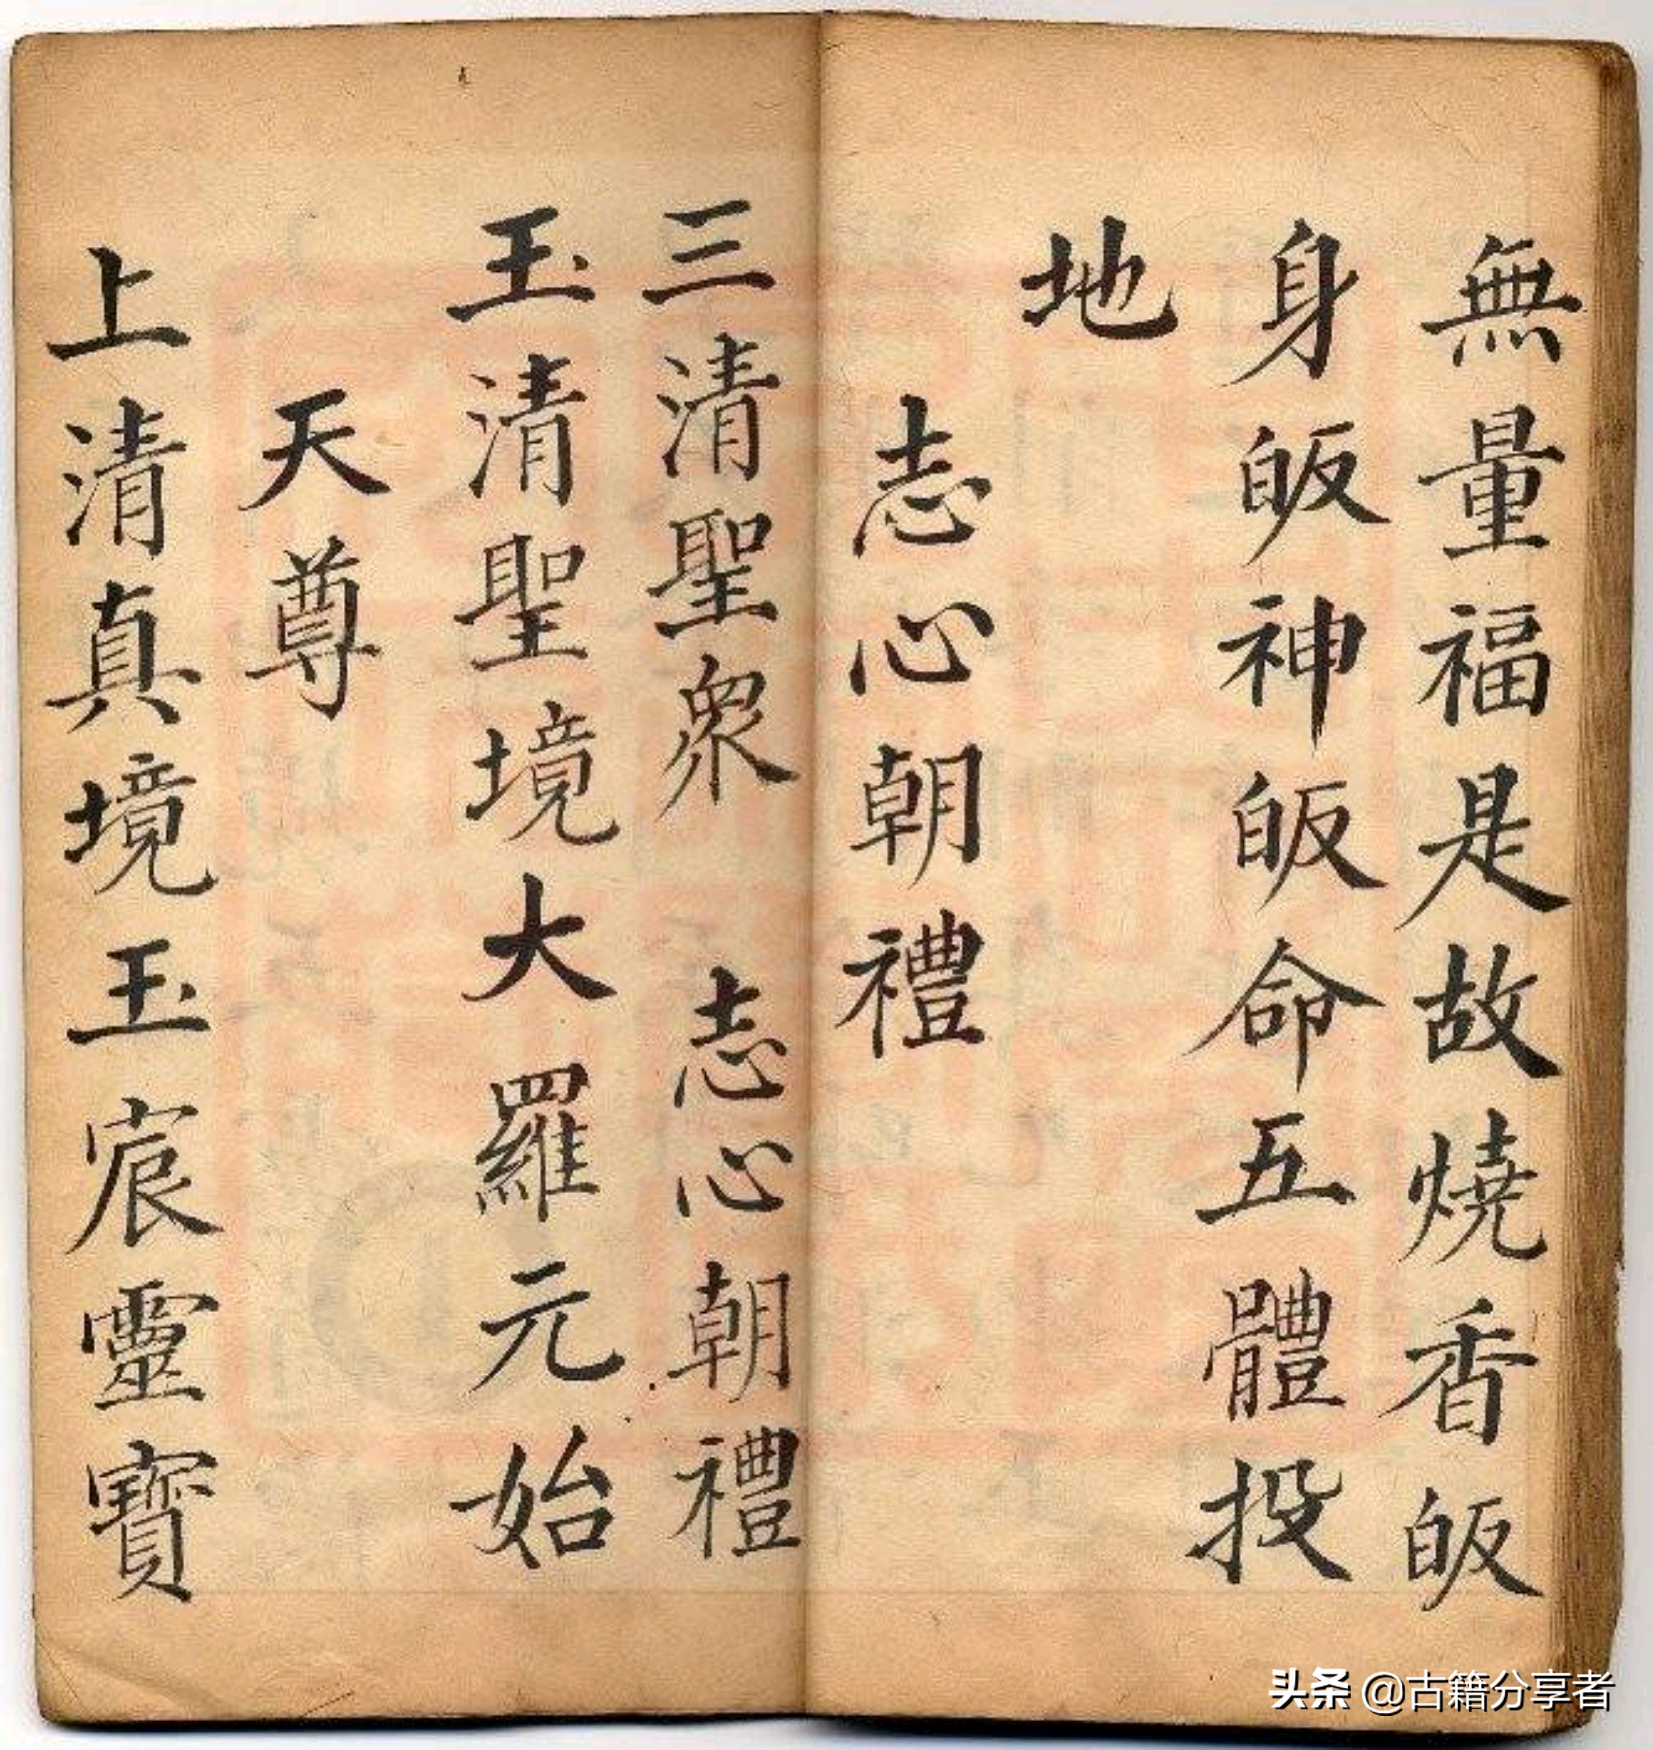 無量福是故燒香皈
身皈神皈命五體投
地
志心朝禮
三清聖衆 志心朝禮
玉清聖境大羅元始
天尊
上清真境玉宸靈寶
头条 @古籍分享者